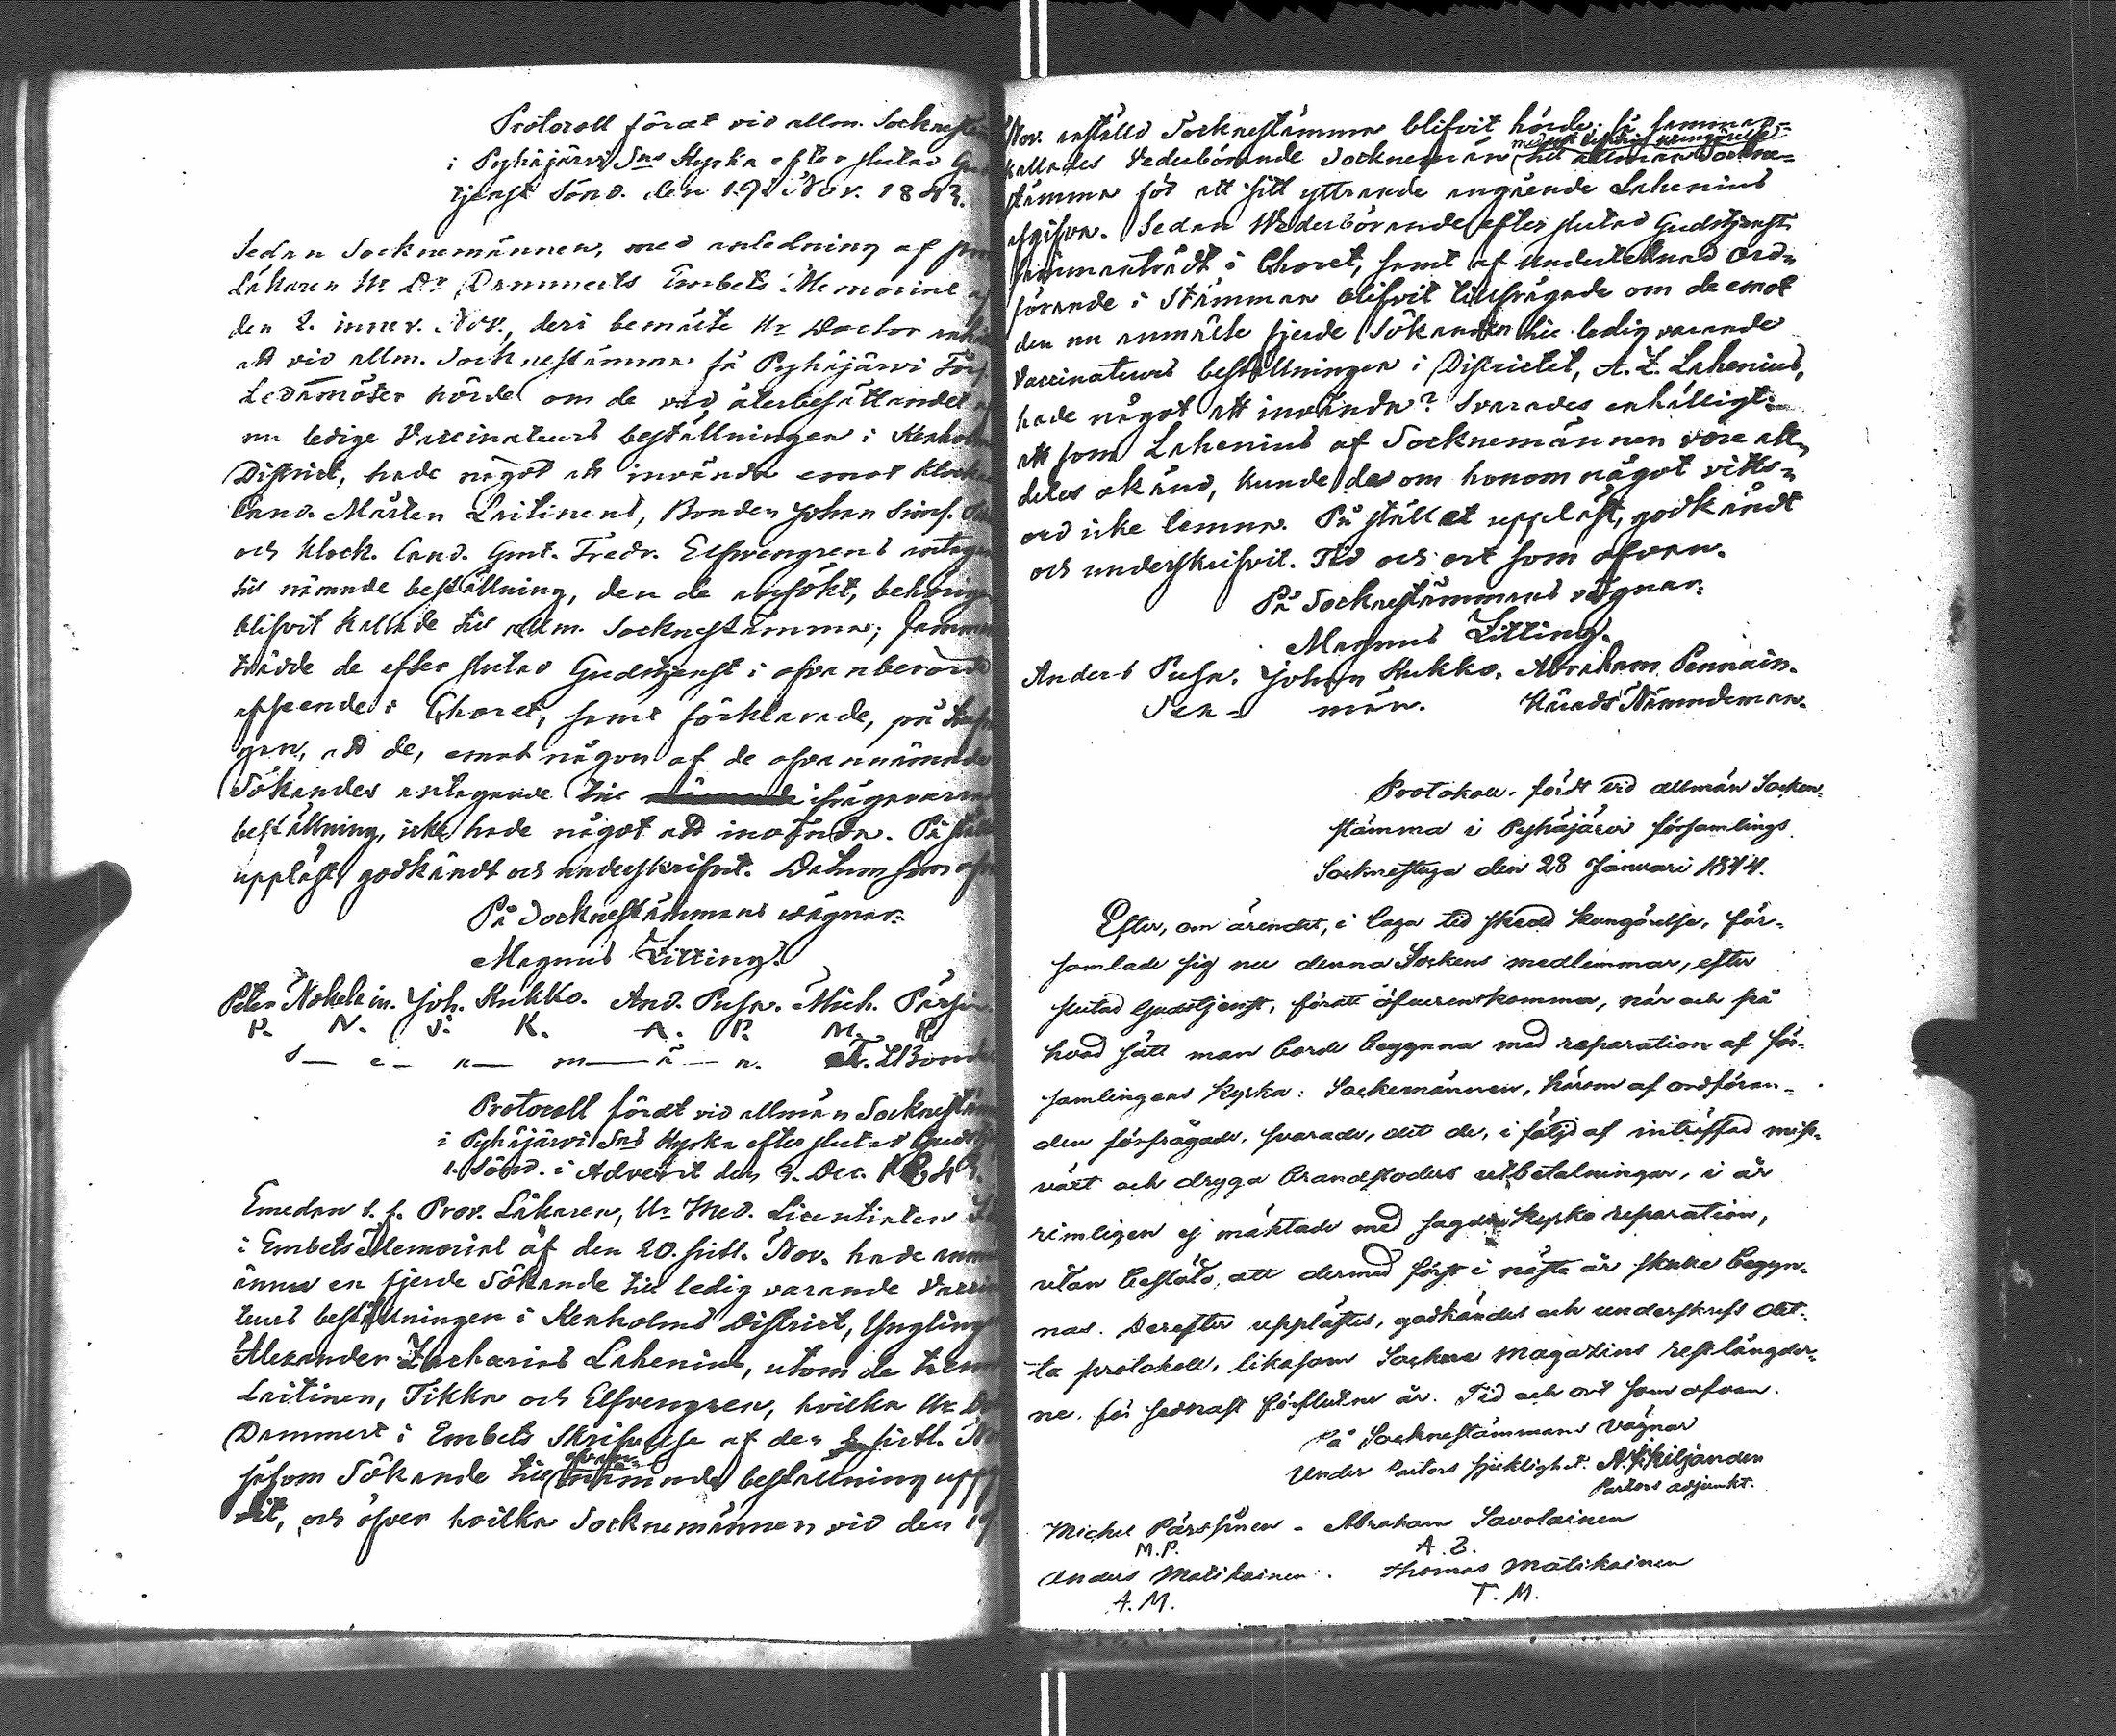 Protocoll fördt vid allm. Socknestäm
i Pyhäjärvi Sns Kyrka efter slutad Gu
tjenst Sönd. den 19 Nov. 1843.
Sedan Socknemännen, med anledning af
Läkaren Hr Dr Dammerts Embets Memorial af
den 2. innev. Nov., deri bemälte Hr Doctor
att vid allm. Socknestämma få Pyhäjärvi För
Ledamöter hörde om de vid återbesättandet
nu ledige Vaccinateurs beställningen i Kexholms
District, hade något att invända emot Klock
Cand. Mårten Laitinens, Bonden Johan Simons.
och Klock. Cand. Gust. Fredr. Elfvengrens antaga
till nämnde beställning, den de ansökt, behörigen
blifvit kallade till allm. Socknestämma; samman
trädde de efter slutad Gudstjenst i ofvanberörde
afseende i Choret, samt förklarade, på
gan, att de, emot någon af de ofvannämnde
Sökandes antagande till ifrågavaran
beställning, icke hade något att invända. På ställe
uppläst, godkändt och underskrifvit. Datum som of
På Socknestämmans vägnar:
Magnus Zitting.
Peter Nokelain. Joh. Kukko. And. Pusa. Mich. Pärsin
P. N. J. K. A. P. M. P.
S— e— x— m— ä— n. Bonde
Protocoll fördt vid allmän Socknestäm
i Pyhäjärvi Sns Kyrka efter slutad Gudstj
1. Sönd. i Advent den 3. Dec. 1843.
Emedan t. f. Prov. Läkaren, Hr Med. Licentiaten
i Embets Memorial af den 20. sistl. Nov. hade anm
ännu en fjerde Sökande till ledig varande Vaccina
teurs beställningen i Kexholms District, Ynglingen
Alexander Zacharias Lahenius, utom de
Laitinen, Tikka och Elfvengren, hvilka Hr D
Dammert i Embets Skrifvelse af den 2 sistl. No
såsom Sökande till ofvan- nämnde beställning upp
vit, och öfver hvilka Socknemännen vid den 19
Nov. anställd Socknestämma blifvit hörde; så samman-
kallades Vederbörande Socknemän till allmän Sockne-
stämma för att sitt yttrande angående Lahenius
afgifva. Sedan Wederbörande efter slutad Gudstjenst
sammanträdt i Choret, samt af undertecknad Ord-
förande i Stämman blifvit tillfrågade om de emot
den nu anmälte fjerde Sökanden till ledig varande
Vaccinateurs beställningen i Districtet, A. Z. Lahenius,
hade något att invända? Svarades enhälligt:
att som Lahenius af Socknemännen vore all-
deles okänd, kunde de om honom något vitts-
ord icke lemna. På stället uppläst, godkändt
och underskrifvit. Tid och ort som ofvan.
På Socknestämmans vägnar:
Magnus Zitting.
Anders Pusa. Johan Kukko. Abraham Pennain.
Sex- män. Härads Nämndeman.
Protokoll, fördt vid allmän Socken-
stämma i Pyhäjärvi församlings
Socknestuga den 28 Januari 1844.
Efter, om ärendet, i laga tid skedd kungörelse, för-
samlade sig nu denna Sockens medlemmar, efter
slutad Gudstjenst, föratt öfverenskomma, när och på
hvad sätt man borde begynna med reparation af för-
samlingens Kyrka: Sockemännen, härom af ordföran-
den förfrågade, svarade, att de, i följd af inträffad miss-
växt och dryga brandstoders utbetalningar, i år
rimligen ej mäktade med sagde Kyrko reparation,
utan beslöto, att dermed först i nästa år skulle begyn-
nas. Derefter upplästes, godkändes och underskrefs det-
ta protokoll, likasom Sockne magazins restlängder-
ne, för sednast förflutne år. Tid och ort som ofvan.
På Socknestämmans vägnar
Under Pastors sjuklighet. A. J. Kiljander
Pastors adjunkt.
Michel Pärssinen - Abraham Savolainen
M.P. A. S.
Anders Matikainen. Thomas Matikainen
A. M. T. M.